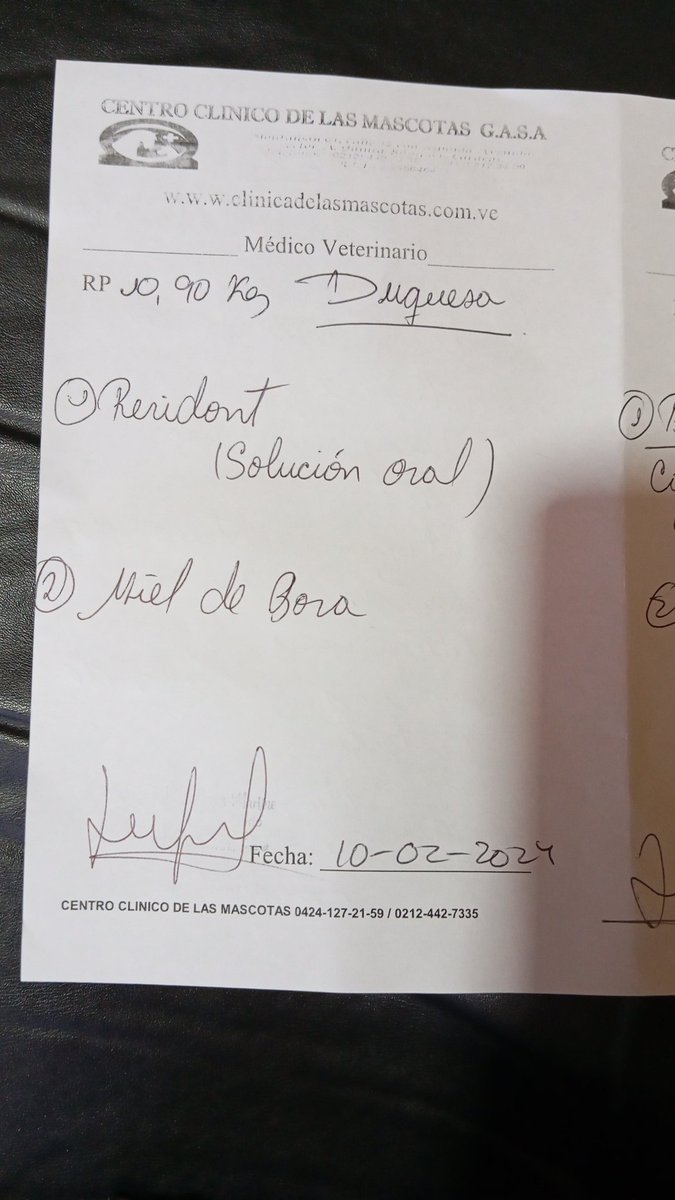 CENTRO CLINICO DE LAS MASCOTAS G.A.S.A
w.w.w.clinicadelasmascotas.com.ve
Médico Veterinario
RP 10,90 Kg Duquesa
① Peridont
(Solución oral)
② Miel de Bora
Fecha: 10-02-2024
CENTRO CLINICO DE LAS MASCOTAS 0424-127-21-59 / 0212-442-7335
①
②